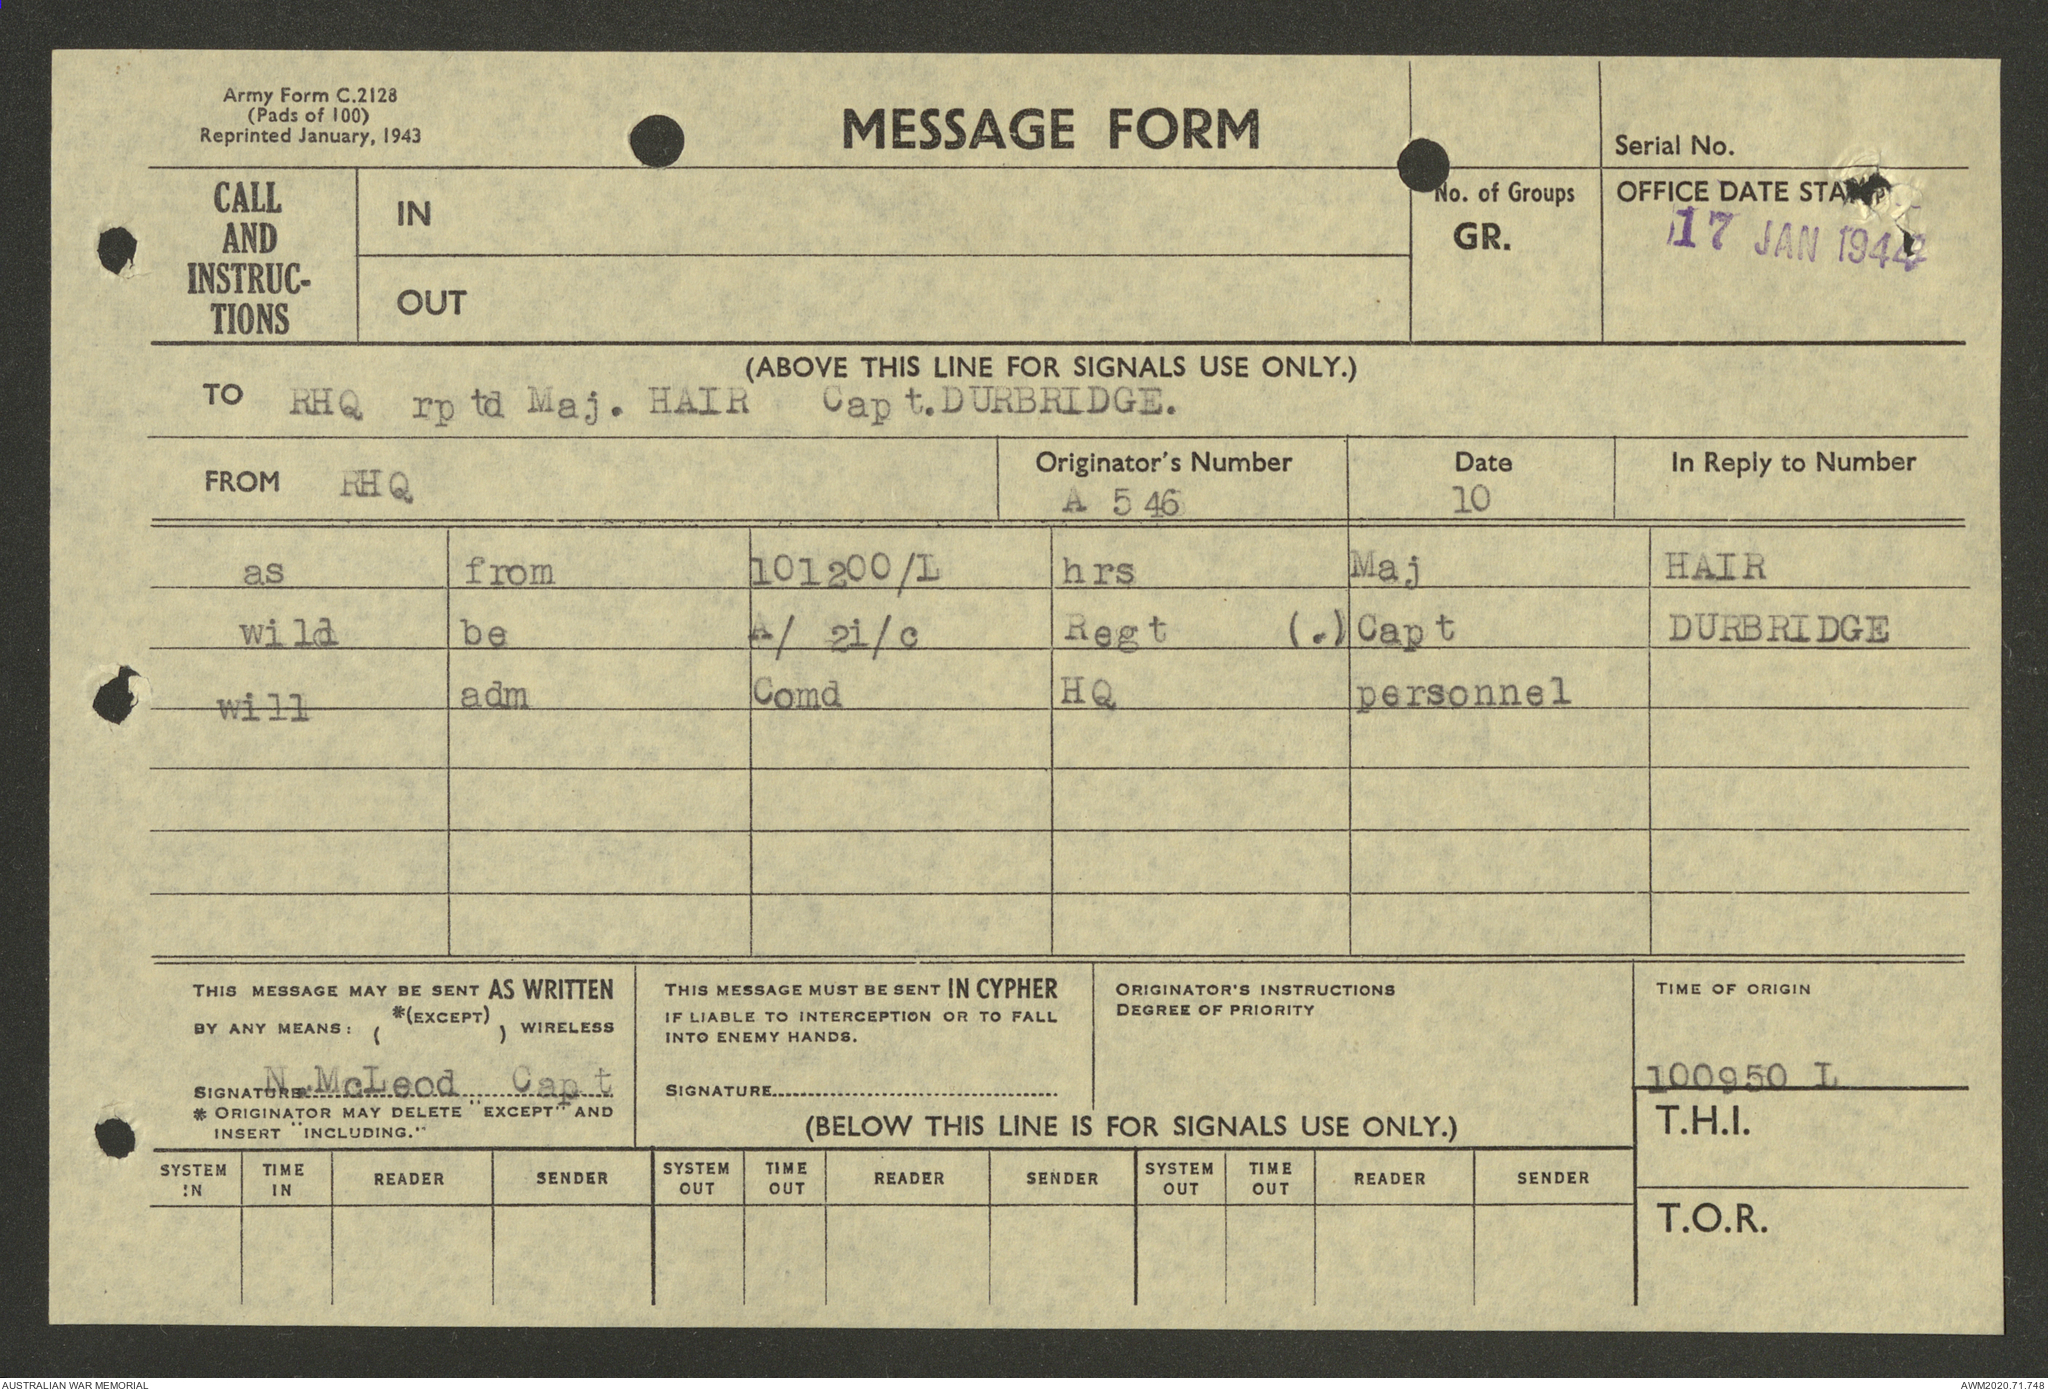 Army Form C.2128
(Pads of 100)
Reprinted January, 1943
MESSAGE FORM
Serial No.
CALL
AND
INSTRUC-
TIONS
IN
OUT
No. of Groups
GR.
OFFICE DATE STAMP
17 JAN 1944
(ABOVE THIS LINE FOR SIGNALS USE ONLY.)
TO RHQ rptd Maj. HAIR Capt.DURBRIDGE.
FROM RHQ
Originator's Number
A 546
Date
10
In Reply to Number
as from 101200/L hrs Maj HAIR
wild be A/ 2i/c Regt (.) Capt DURBRIDGE
will adm Comd HQ personnel
THIS MESSAGE MAY BE SENT AS WRITTEN
BY ANY MEANS: ( *(EXCEPT) ) WIRELESS
SIGNATURE N.McLeod Capt
* ORIGINATOR MAY DELETE "EXCEPT" AND
INSERT "INCLUDING."
THIS MESSAGE MUST BE SENT IN CYPHER
IF LIABLE TO INTERCEPTION OR TO FALL
INTO ENEMY HANDS.
SIGNATURE
ORIGINATOR'S INSTRUCTIONS
DEGREE OF PRIORITY
TIME OF ORIGIN
100950 L
(BELOW THIS LINE IS FOR SIGNALS USE ONLY.)
T.H.I.
T.O.R.
SYSTEM IN TIME IN READER SENDER SYSTEM OUT TIME OUT READER SENDER SYSTEM OUT TIME OUT READER SENDER
AUSTRALIAN WAR MEMORIAL
AWM2020.71.748